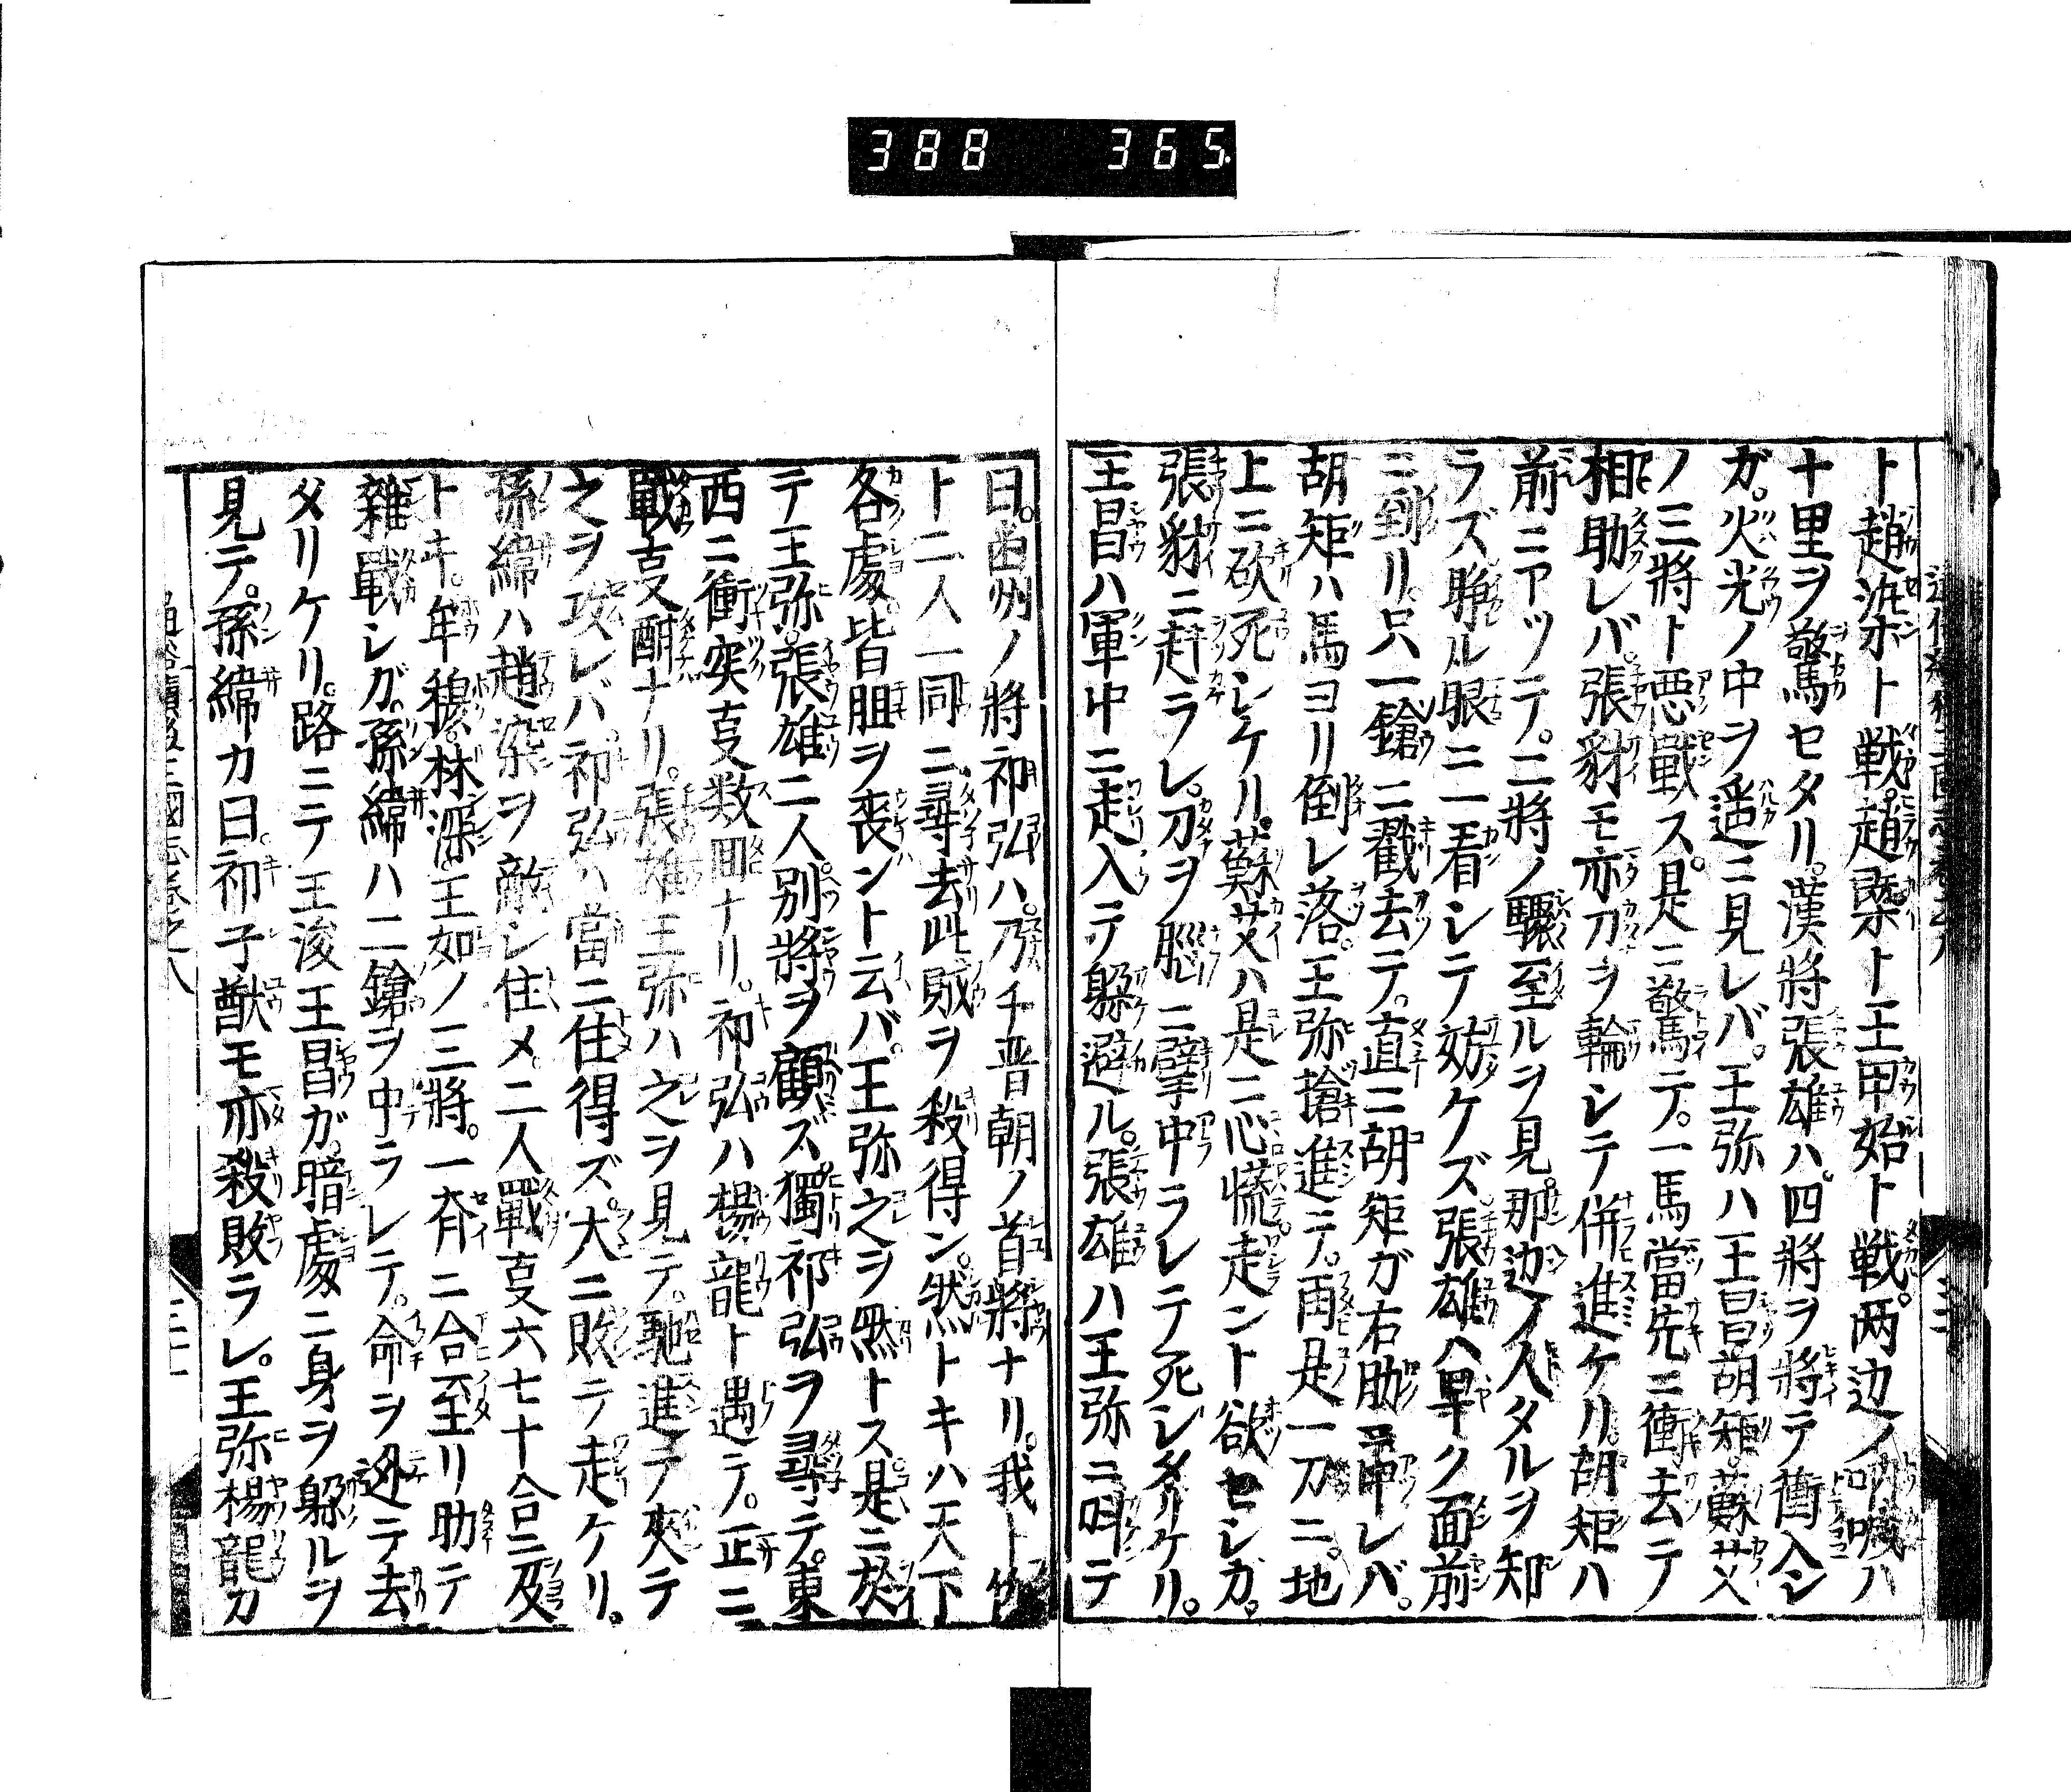 388 365
ト趙染ホト戦。趙槩ト王甲始ト戦。两辺ノ吶喊ハ
十里ヲ驚セタリ。漢將張雄ハ。四將ヲ將テ衝入シ
ガ。火光ノ中ヲ遥ニ見レバ。王弥ハ王昌胡矩。蘓艾
ノ三將ト悪戰ス。是ニ驚テ。一馬當先ニ衝去テ
相助レバ。張豺モ亦刀ヲ輪シテ併進ケリ。胡矩ハ
前ニアツテ。二將ノ驟至ルヲ見。那辺ノ人タルヲ知
ラズ。睁ル眼ニ一看シテ妨ケズ。張雄ハ早ク面前
ニ到リ。只一鎗ニ戳去テ。直ニ胡矩ガ右肋ニ中レバ。
胡矩ハ馬ヨリ倒レ落。王弥搶進テ。両是一刀ニ。地
上ニ砍死シケリ。蘓艾ハ是ニ心慌走ント欲セシカ。
張豺ニ赶ラレ。刀ヲ脳ニ劈中ラレテ死シタリケリ。
王昌ハ軍中ニ走入テ躱避ル。張雄ハ王弥ニ呌テ
曰。幽州ノ將祁弘ハ。乃チ晋朝ノ首將ナリ。我ト你
ト二人一同ニ尋去此賊ヲ殺得ン。然トキハ天下
各處皆胆ヲ喪ント云バ。王弥之ヲ然トス。是ニ於
テ王弥。張雄二人別將ヲ顧ズ。獨祁弘ヲ尋テ。東
西ニ衝突叓数囬ナリ。祁弘ハ楊龍ト遇テ。正ニ
戰叓酣ナリ。張雄王弥ハ之ヲ見テ。馳進テ夾テ
之ヲ攻レバ。祁弘ハ當ニ住得ズ。大ニ敗テ走ケリ。
孫緯ハ趙染ヲ敵シ住メ。二人戰叓六七十合ニ及
トキ。牟穆。林深。王如ノ三將。一斉ニ合至リ助テ
雜戰シガ。孫緯ハ二鎗ヲ中ラレテ。命ヲ迯テ去
タリケリ。路ニテ王浚王昌ガ。暗處ニ身ヲ躱ルヲ
見テ。孫緯カ曰。祁子猷モ亦殺敗ラレ。王弥楊龍カ